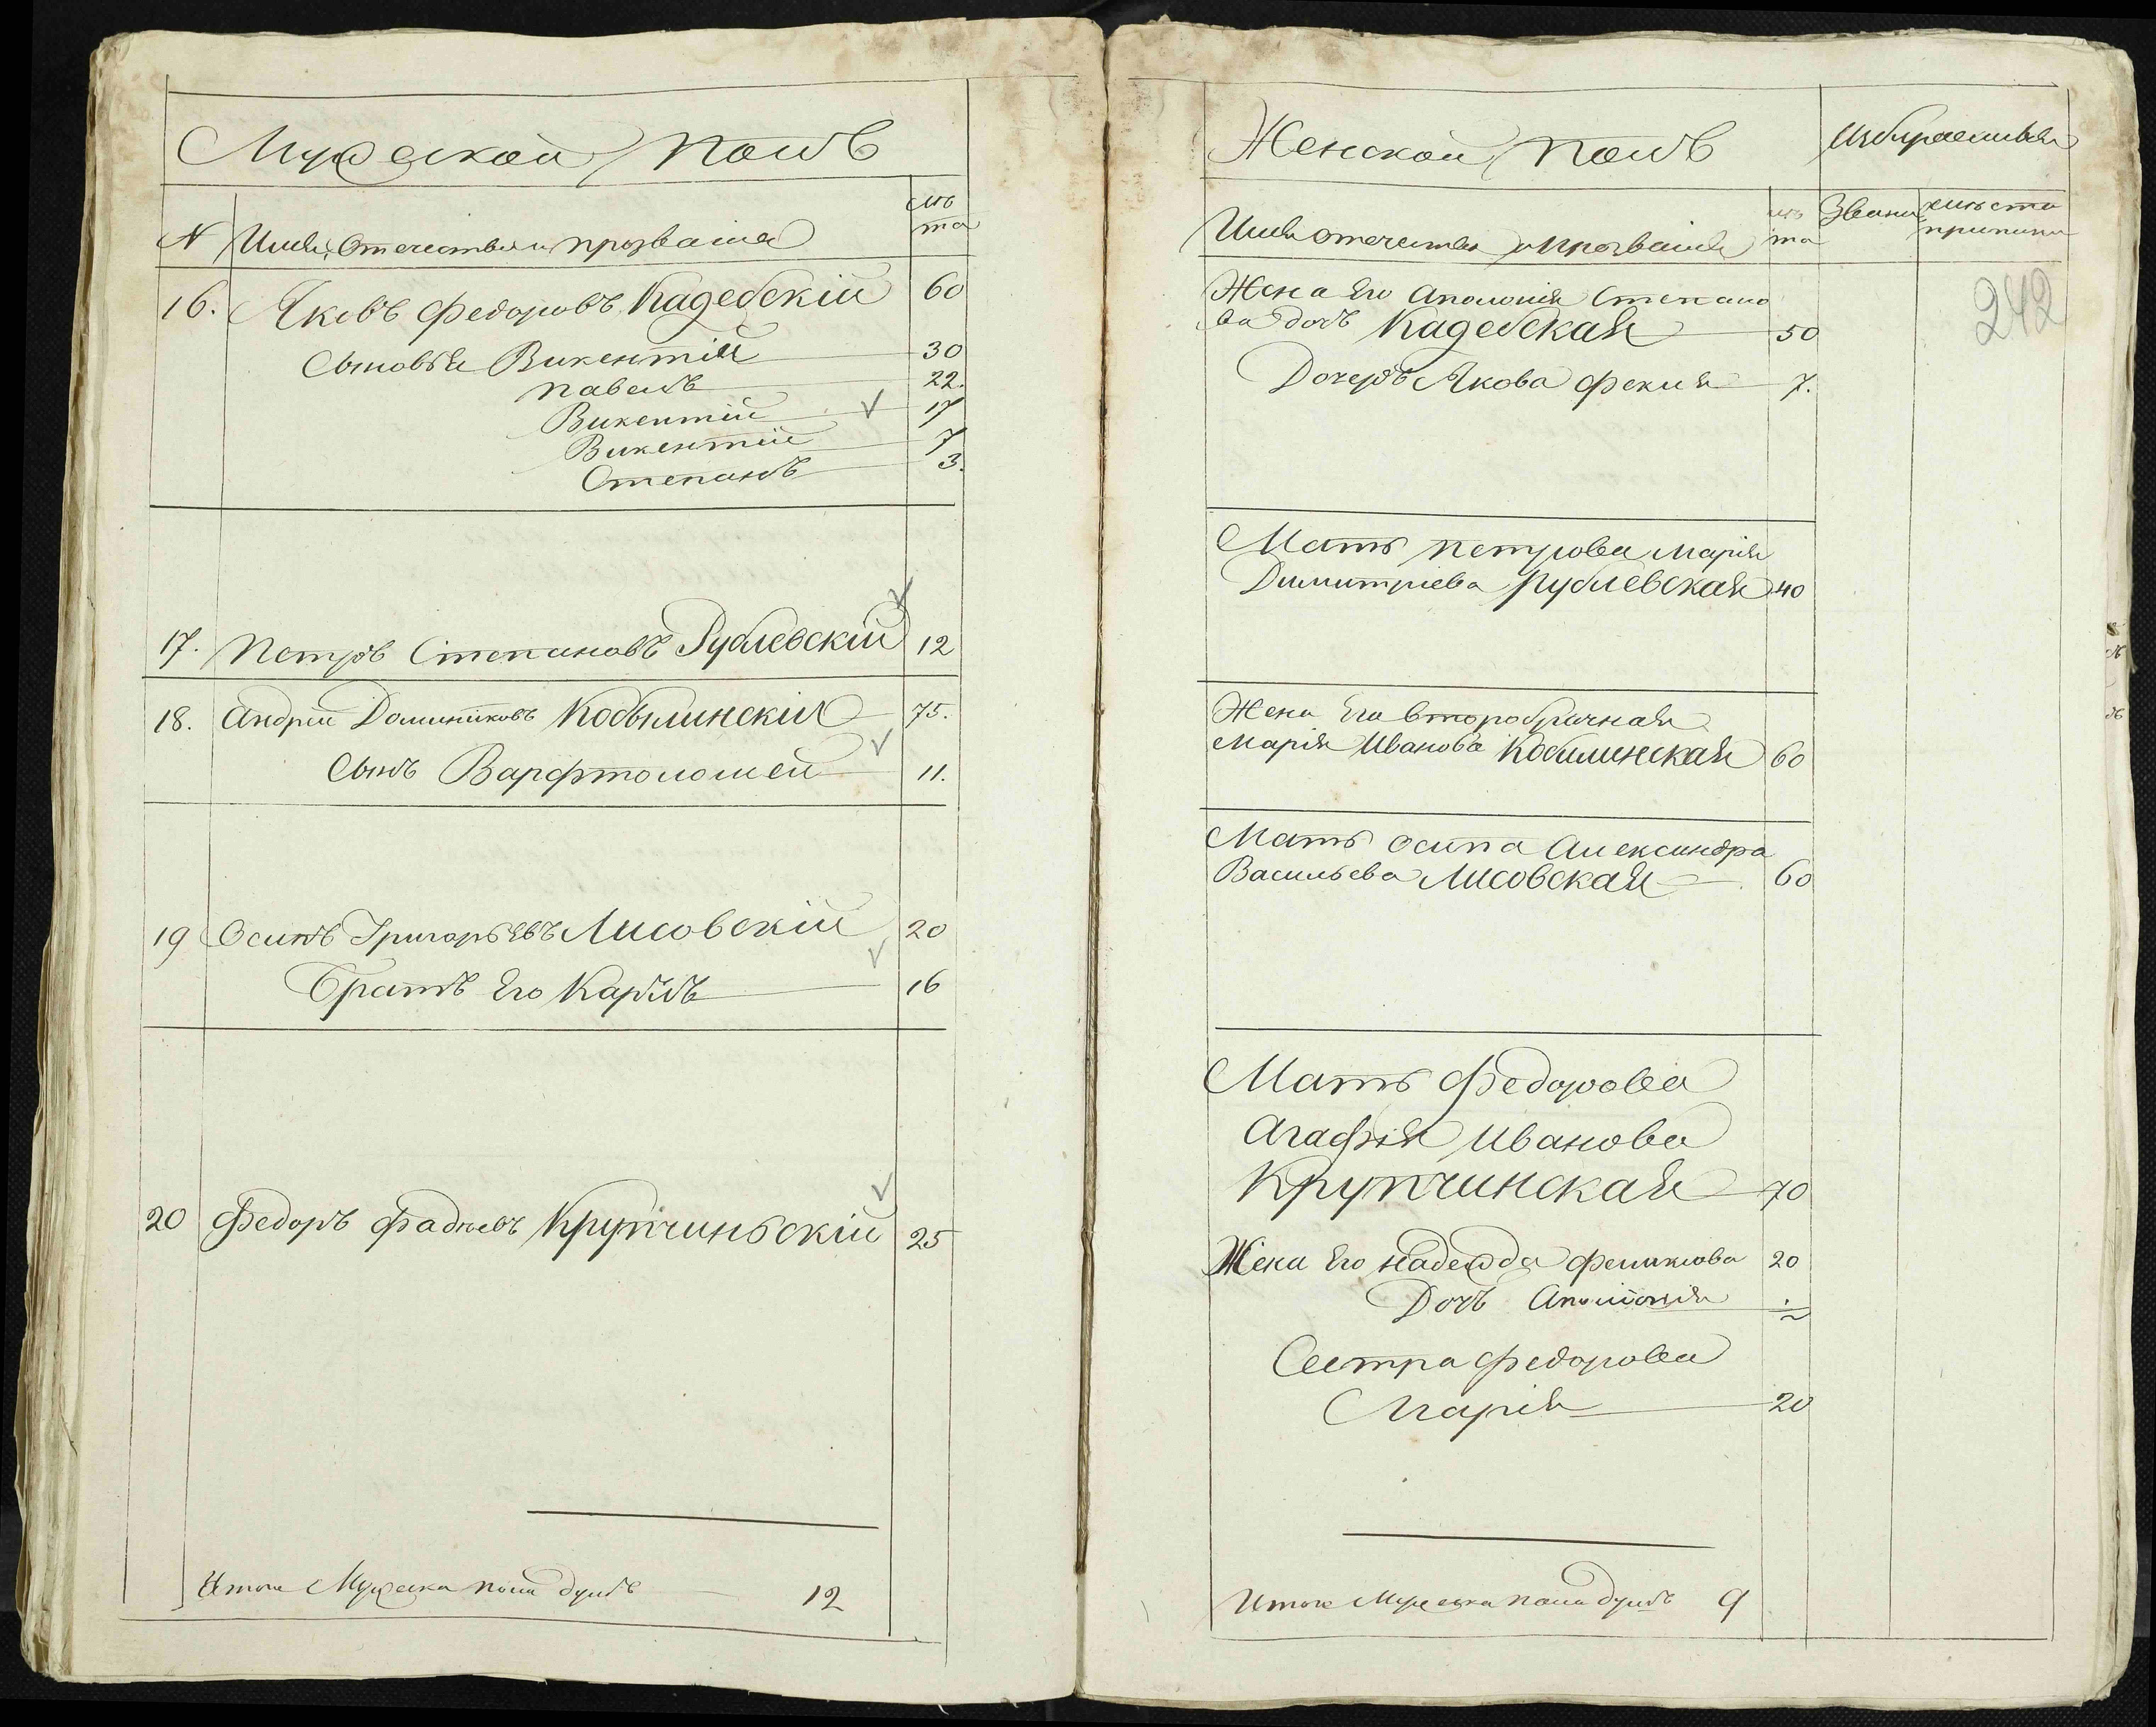 Мужескои полъ
N Имя, Отечество и прозваніе
лѣ
та
16. Яковъ Федоровъ Кадебскій 60
Сыновья Викентіи 30
Павелъ 22.
Викентіи 17
Викентіи 7
Степанъ 3.
17. Петръ Степановъ Рублевскій 12
18. Андрей Доминиковъ Кобылинскій 75.
Сынъ Варфтоломей 11.
19 Осипъ Григорьевъ Лисовскій 20
Братъ Его Карлъ 16
20 Федоръ Фадѣевъ Крупчиньскій 25
Итого Мужеска пола душъ 12
Женской полъ
Избираемыя
Имя отечество и прозваніе
лѣ
та
Звани
мѣста
приписи
242
Жена Его Аполонія Степано
ва дочь Кадебская 50
Дочерь Якова Фекла 7.
Мать Петрова Марія
Димитріева Рублевская 40
Жена Его второбрачная
Марія Иванова Кобылинская 60
Мать Осипа Александра
Васильева Лисовская 60
Мать Федорова
Агафія Иванова
Крупчинская 70
Жена Его Надежда 20
Дочь Аполонія
Сестра Федорова
Марія 20
Итого Мужеска пола душъ 9